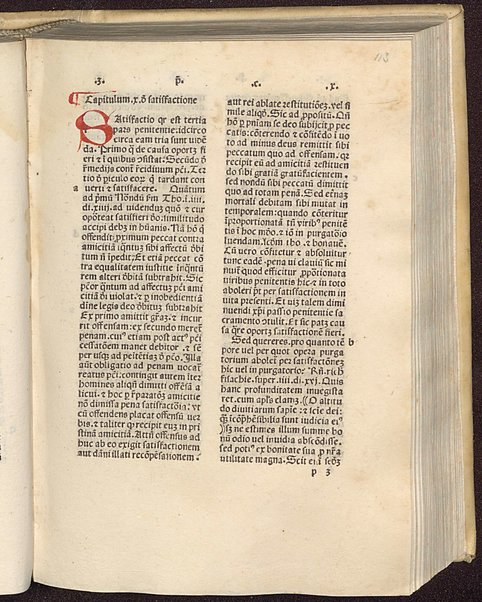 113
.3. p̄. .c. .x.
¶ Capitulum .x. ō satisfactione
SAtisfactio qr est tertia
pars penitentie: idcirco
circa eam tria sunt viden̄
da. Primo q̄ de causa oportz fi
eri ⁊ ī quibus ↄsistat. Secūdo ō
remedijs contͣ residiuum pcī. Ter
tio ō piculo eorꝝ q̇ tardant con
a uerti ⁊ satisfacere. Quātum
ad pͥmū Nōdū ẜm Tho .i. iiii.
di. xiiii. ad uidendū quō ⁊ cur
opōrteat satisfieri dō: similitudo
accipi debꝫ in hūanis. Nā hō q̄
offendit primum peccat contra
amicitiā īquātuꝫ sibi affectū ōbi
tum nō īpedit: Et etiā peccat cō
tra equalitatem iustitie īquātū
rem alteri ōbitā subtrahit. Sic
pc̄cor quātum ad affectū pcī ami
citiā dī violat: ⁊ p inobedientiā
diīne legis deo ōbituꝫ subtrahit
Ex primo amittit gr̄aꝫ: ⁊ incur
rit offensam: ex secundo meret̄
penam. cui⁹ etiam post act⁹ pcī
cessatōem manet debitor. ⁊ sē
per usqꝫ ad peītētiaꝫ ō pc̄o. Illa
aūt obligatio ad penam uocat̄
reatus pcī: contingit autem ītez
homines aliqn̄ dimitti offēsā a
licui. ⁊ hoc p repatōꝫ amicitie
nō dimissa pena satisfactoīa: vt
cū offendens placat offensū uer
bis. ⁊ taliter ꝙ recipit eum in pri
stinā amicitiā. Attn̄ offensus ad
huc ab eo exigit satisfactionem
aut dāni illati recōpēsationem.
aut rei ablate restitutiōeꝫ. vel si
mile aliqd̄. Sic ad ꝓpositū. Qn̄
hō p pn̄iam se deo subijcit p pec
catis: ↄterendo ⁊ ↄfitēdo ī uo
to ad minus deus remittit sibi
peccatum quo ad offensam. qꝛ
recipit eū ad amicitiā restituen
do sibi gratiā gratūfacientem.
sed nondū sibi peccatū dimittit
quo ad totam penā. Sed etnaꝫ
mortali debitam sibi mutat in
temporalem: quando ↄteritur
īproportionatā tn̄ viribꝰ peniten̄
tis ī hoc mōo. ⁊ iō in purgatōio
luendam. Icōm tho. ⁊ bonauē.
Cū vero ↄfitetur ⁊ absoluitur
tunc eadē pena ui clauiū sic mi
nuit̄ quod efficitur ꝓpōtionata
viribus penitentis hic ⁊ in toto
aboleri pt̄ per satisfactionem in
uita presenti. Et uiꝫ talem dimi
nuendi xp̄i passio penitentie sa
cramento ↄtulit. Et sic patꝫ cau
sa q̄re oportꝫ satisfactionē fieri.
Sed quereres. pro quanto tē b
pore uel per quot opera purga
torium aboleri pꝫ satisfactōeꝫ
hic uel in purgatorio? Rn̄. rich
fisachie. super .iiii. di. xxj. Quis
hanc profunditatem inuestiga
ret. cum apl̄s clamꝫ. (O altitu
do diuitiarum sapīe ⁊ scīe dei:
q̄ īcōphēsibilia sunt iudicia ei⁹)
Sꝫ ne estimes illum summe bo
nū odio uel inuidia abscōdisse.
sed poti⁹ ex bonitate sua p nr̄a
utilitate magna. Scit ei ī seōꝫ
p 3